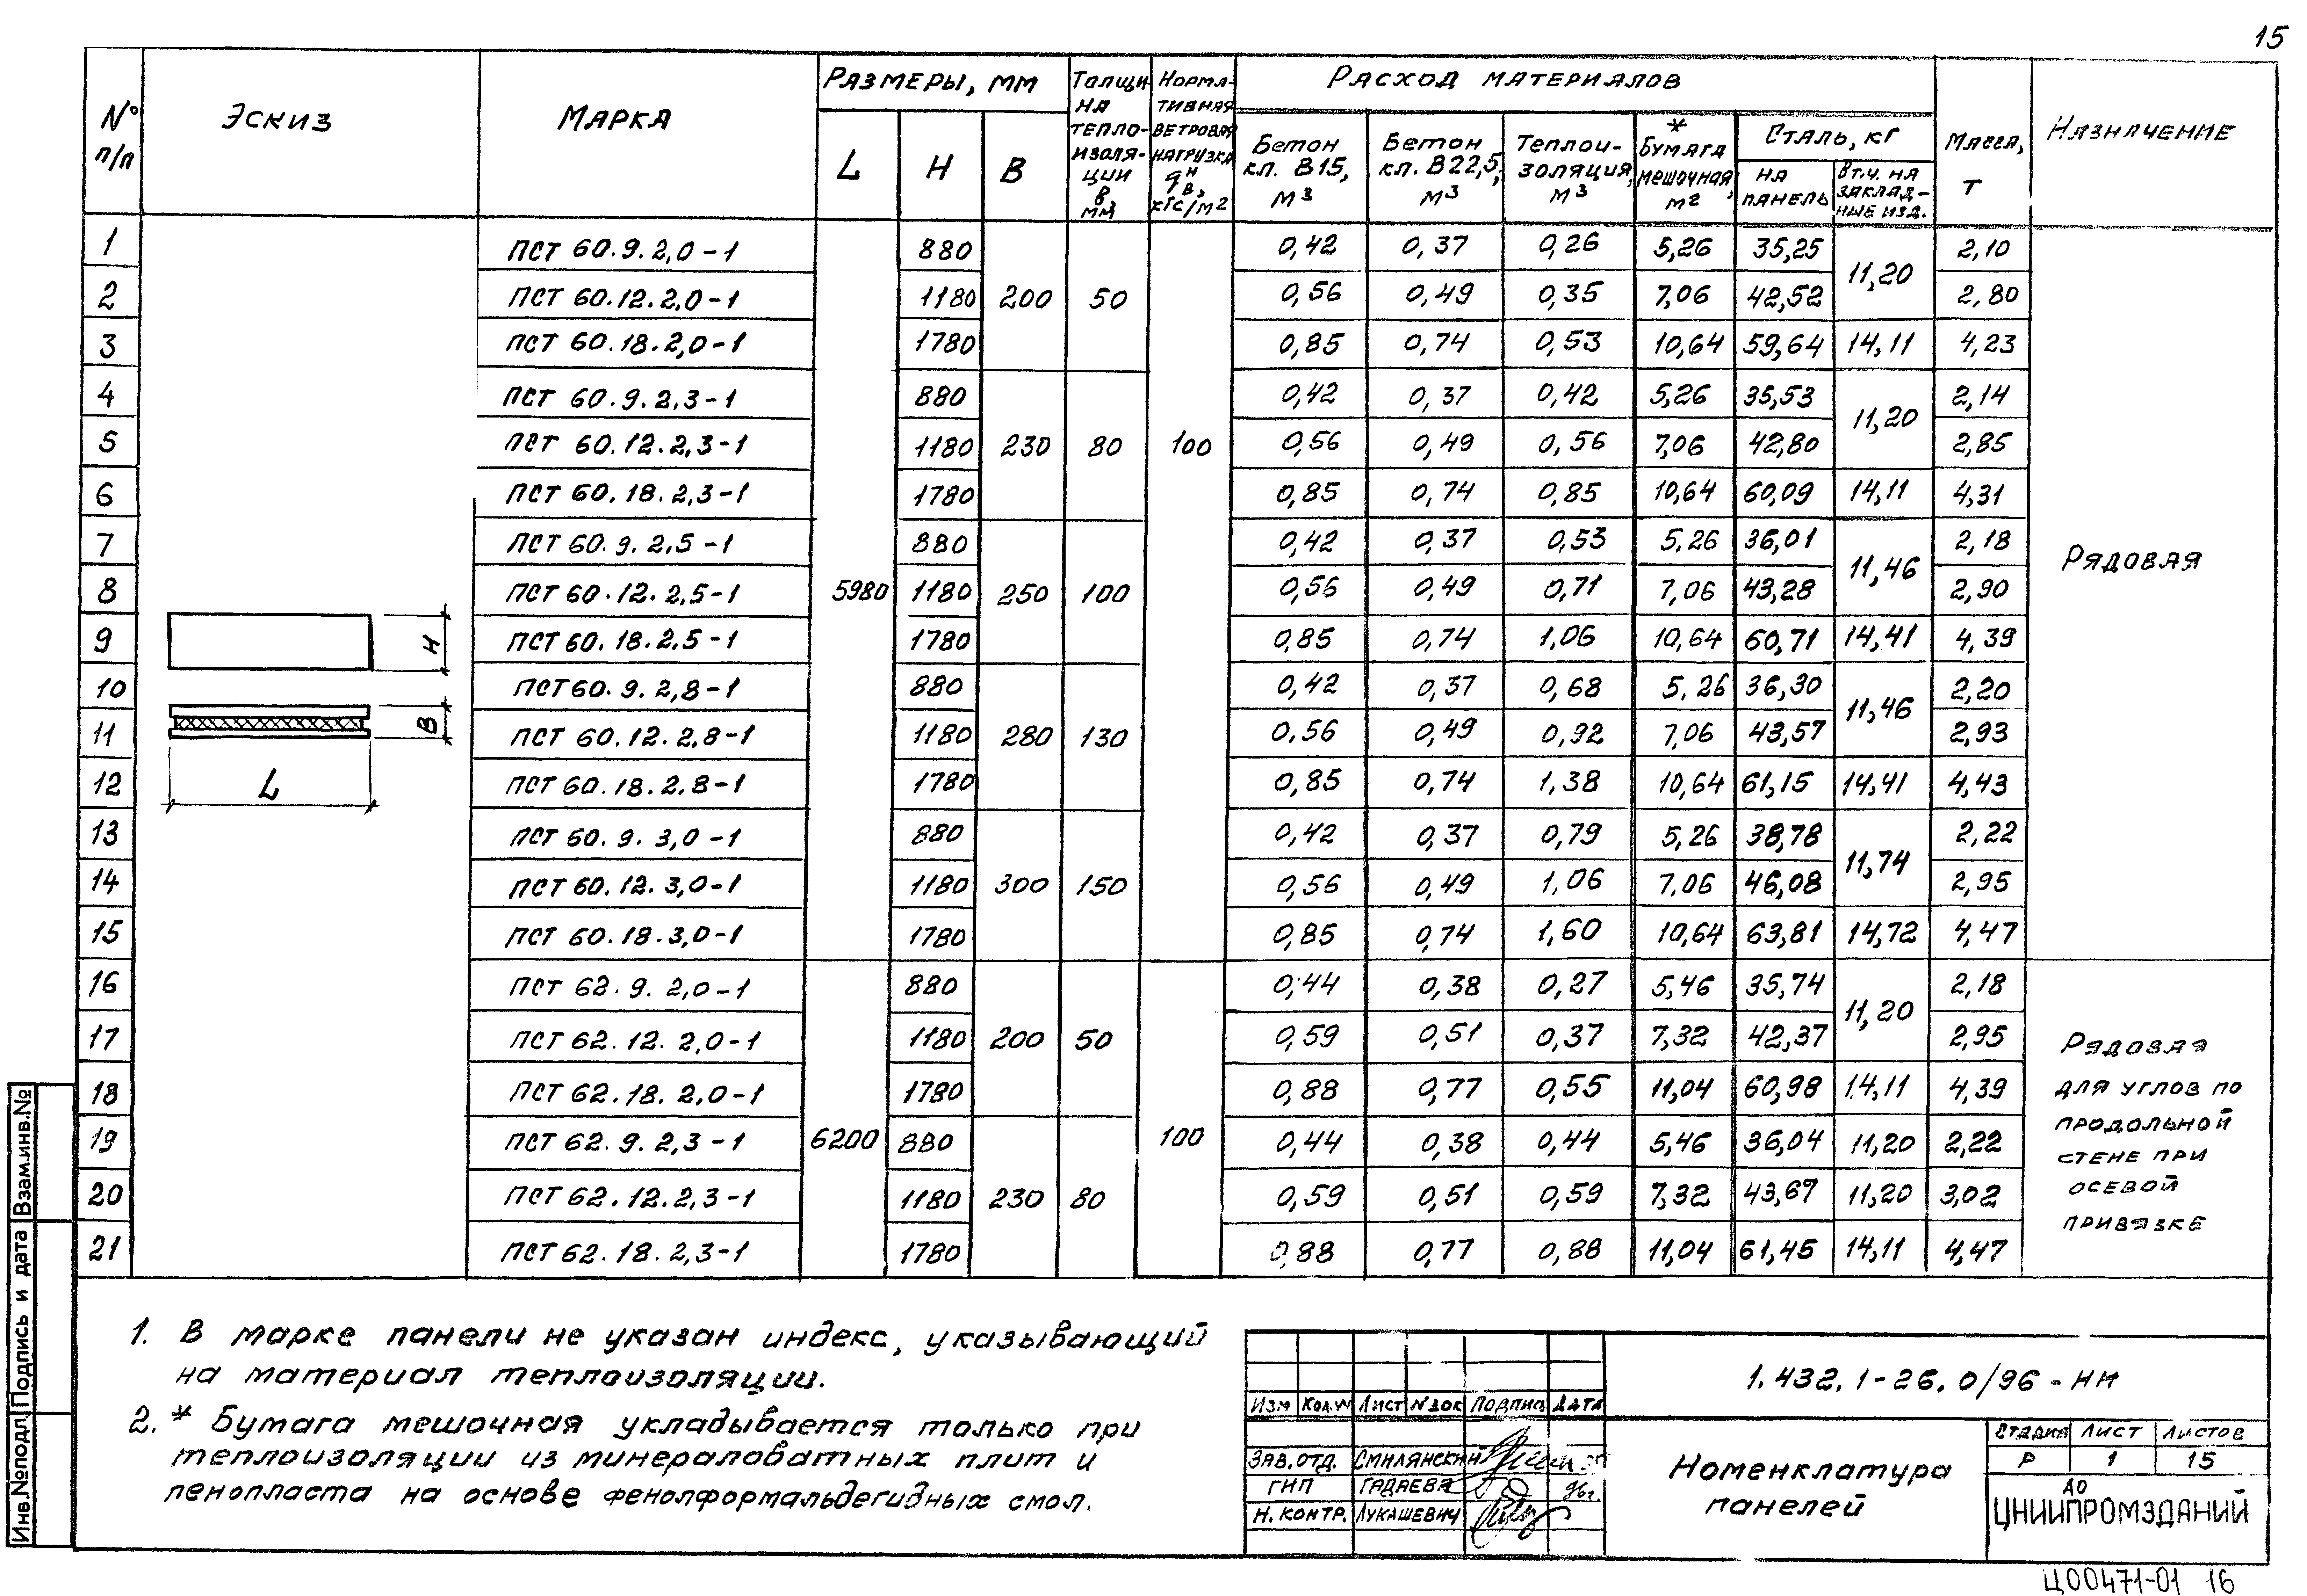 15
№ п/п ЭСКИЗ МАРКА РАЗМЕРЫ, ММ L H B ТАЛЩИНА ТЕПЛО-ИЗОЛЯ-ЦИИ В ММ НОРМА-ТИВНАЯ ВЕТРОВАЯ НАГРУЗКА qᴴв, кгс/м² РАСХОД МАТЕРИАЛОВ БЕТОН КЛ. В15, м³ БЕТОН КЛ. В22,5, м³ ТЕПЛОИ-ЗОЛЯЦИЯ, м³ * БУМАГА МЕШОЧНАЯ, м² СТАЛЬ, КГ НА ПАНЕЛЬ В Т.Ч. НА ЗАКЛАД-НЫЕ ИЗД. МАССА, Т НАЗНАЧЕНИЕ
1 ПСТ 60.9.2,0-1 880 0,42 0,37 0,26 5,26 35,25 11,20 2,10
2 ПСТ 60.12.2,0-1 1180 200 50 0,56 0,49 0,35 7,06 42,52 2,80
3 ПСТ 60.18.2,0-1 1780 0,85 0,74 0,53 10,64 59,64 14,11 4,23
4 ПСТ 60.9.2,3-1 880 0,42 0,37 0,42 5,26 35,53 11,20 2,14
5 ПСТ 60.12.2,3-1 1180 230 80 100 0,56 0,49 0,56 7,06 42,80 2,85
6 ПСТ 60.18.2,3-1 1780 0,85 0,74 0,85 10,64 60,09 14,11 4,31
7 ПСТ 60.9.2,5-1 880 0,42 0,37 0,53 5,26 36,01 11,46 2,18 РЯДОВАЯ
8 ПСТ 60.12.2,5-1 5980 1180 250 100 0,56 0,49 0,71 7,06 43,28 2,90
9 H ПСТ 60.18.2,5-1 1780 0,85 0,74 1,06 10,64 60,71 14,41 4,39
10 ПСТ 60.9.2,8-1 880 0,42 0,37 0,68 5,26 36,30 11,46 2,20
11 B ПСТ 60.12.2,8-1 1180 280 130 0,56 0,49 0,92 7,06 43,57 2,93
12 L ПСТ 60.18.2,8-1 1780 0,85 0,74 1,38 10,64 61,15 14,41 4,43
13 ПСТ 60.9.3,0-1 880 0,42 0,37 0,79 5,26 38,78 11,74 2,22
14 ПСТ 60.12.3,0-1 1180 300 150 0,56 0,49 1,06 7,06 46,08 2,95
15 ПСТ 60.18.3,0-1 1780 0,85 0,74 1,60 10,64 63,81 14,72 4,47
16 ПСТ 62.9.2,0-1 880 0,44 0,38 0,27 5,46 35,74 11,20 2,18
17 ПСТ 62.12.2,0-1 1180 200 50 0,59 0,51 0,37 7,32 42,37 2,95
18 ПСТ 62.18.2,0-1 1780 0,88 0,77 0,55 11,04 60,98 14,11 4,39
19 ПСТ 62.9.2,3-1 6200 880 100 0,44 0,38 0,44 5,46 36,04 11,20 2,22
20 ПСТ 62.12.2,3-1 1180 230 80 0,59 0,51 0,59 7,32 43,67 11,20 3,02
21 ПСТ 62.18.2,3-1 1780 0,88 0,77 0,88 11,04 61,45 14,11 4,47
РЯДОВАЯ
ДЛЯ УГЛОВ ПО
ПРОДОЛЬНОЙ
СТЕНЕ ПРИ
ОСЕВОЙ
ПРИВЯЗКЕ
1. В марке панели не указан индекс, указывающий
на материал теплоизоляции.
2. * Бумага мешочная укладывается только при
теплоизоляции из минераловатных плит и
пенопласта на основе фенолформальдегидных смол.
Инв.№подл. Подпись и дата Взам.инв.№
1.432.1-26.0/96-НМ
ИЗМ КОЛ.УЧ ЛИСТ №ДОК ПОДПИСЬ ДАТА
ЗАВ.ОТД. СМИЛЯНСКИЙ
ГИП ГАДАЕВА 96г.
Н. КОНТР. ЛУКАШЕВИЧ
Номенклатура
панелей
СТАДИЯ ЛИСТ ЛИСТОВ
Р 1 15
АО
ЦНИИПРОМЗДАНИЙ
Ц00471-01 16